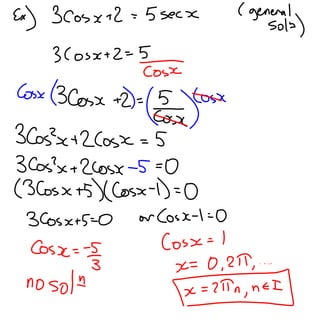 Ex) 3Cosx+2 = 5secx (general sol^ns)
3Cosx+2=5/Cosx
Cosx(3Cosx+2)=(5/Cosx)Cosx
3Cos²x+2Cosx=5
3Cos²x+2Cosx-5=0
(3Cosx+5)(Cosx-1)=0
3Cosx+5=0 or Cosx-1=0
Cosx=-5/3
no sol^n
Cosx=1
x=0,2π,...
x=2πn, n∈I